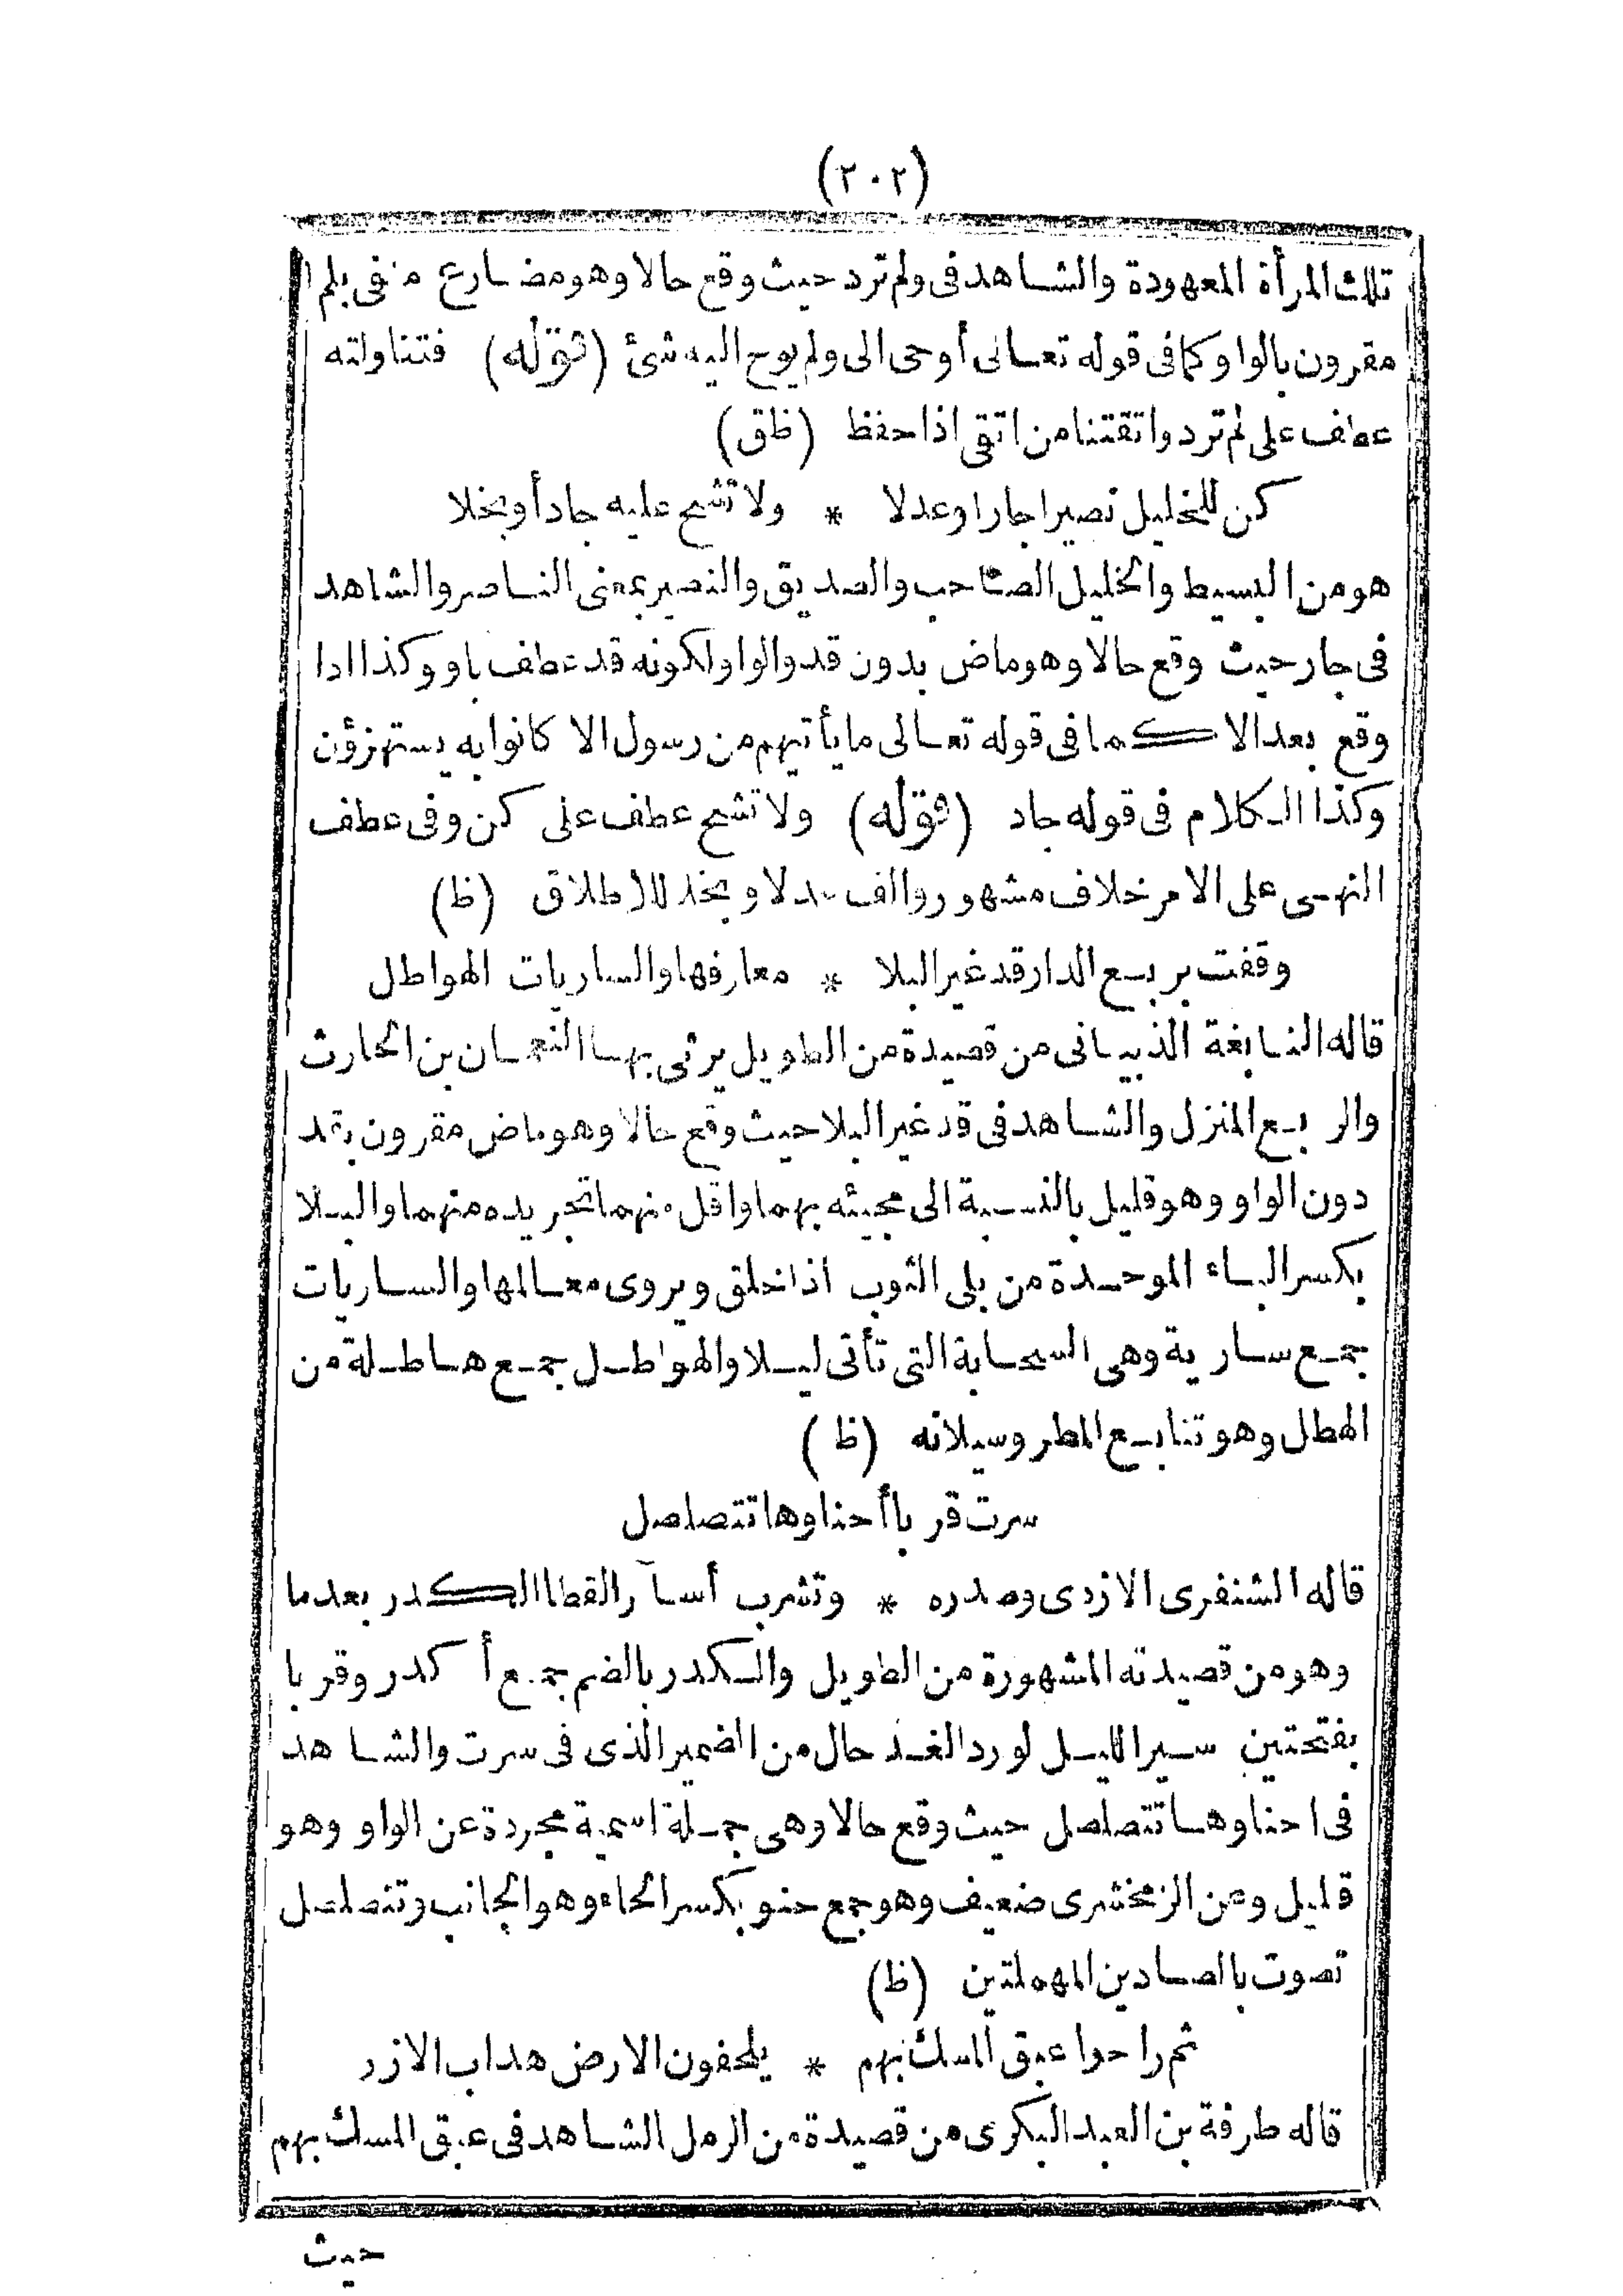 (٢٠٢)
تلك المرأة المعهودة والشاهد فى ولم ترد حيث وقع حالا وهو مضارع منفى بلم
مقرون بالواو كما فى قوله تعالى أوحى الى ولم يوح اليه شئ (قوله) فتناولته
عطف على لم ترد واتقتنا من اتقى اذا حفظ (ظق)
كن للخليل نصيرا جار اوعدلا * ولا تشح عليه جاد أو بخلا
هو من البسيط والخليل الصاحب والصديق والنصير بمعنى الناصر والشاهد
فى جار حيث وقع حالا وهو ماض بدون قد والواو لكونه قد عطف باو وكذا اذا
وقع بعد الا كما فى قوله تعالى ما يأتيهم من رسول الا كانوا به يستهزؤن
وكذا الكلام فى قوله جاد (قوله) ولا تشح عطف على كن وفى عطف
النهى على الامر خلاف مشهور والف عدلا وبخلا للاطلاق (ظ)
وقفت بربع الدار قد غير البلا * معارفها والساريات الهواطل
قاله النابغة الذبيانى من قصيدة من الطويل يرثى بها النعمان بن الحارث
والربع المنزل والشاهد فى قد غير البلا حيث وقع حالا وهو ماض مقرون بقد
دون الواو وهو قليل بالنسبة الى مجيئه بهما واقل منهما تجريده منهما والبلا
بكسر الباء الموحدة من بلى الثوب اذا خلق ويروى معالمها والساريات
جمع سارية وهى السحابة التى تأتى ليلا والهواطل جمع هاطلة من
الهطل وهو تتابع المطر وسيلانه (ظ)
سرت قربا أحناوها تتصلصل
قاله الشنفرى الازدى وصدره * وتشرب أسآر القطا الكدر بعدما
وهو من قصيدته المشهورة من الطويل والكدر بالضم جمع أكدر وقربا
بفتحتين سير الليل لورد الغد حال من الضمير الذى فى سرت والشاهد
فى احناوها تتصلصل حيث وقع حالا وهى جملة اسمية مجردة عن الواو وهو
قليل وعن الزمخشرى ضعيف وهو جمع حنو بكسر الحاء وهو الجانب وتتصلصل
تصوت بالصادين المهملتين (ظ)
ثم راحوا عبق المسك بهم * يلحفون الارض هداب الازر
قاله طرفة بن العبد البكرى من قصيدة من الرمل الشاهد فى عبق المسك بهم
حيث